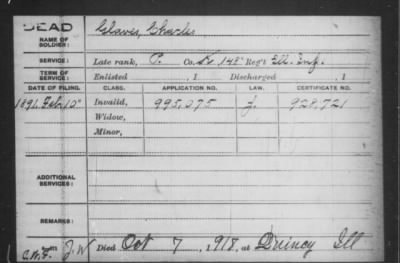 DEAD
NAME OF SOLDIER: Glaves, Charles
SERVICE: Late rank, P. Co. K, 148" Reg't Ill. Inf.
TERM OF SERVICE: Enlisted , 1 Discharged , 1
DATE OF FILING. CLASS. APPLICATION NO. LAW. CERTIFICATE NO.
1891, Feb. 10" Invalid, 995,075 J. 928,721
Widow,
Minor,
ADDITIONAL SERVICES:
REMARKS:
C.W.F. J.W Died Oct 7, 1918, at Quincy Ill